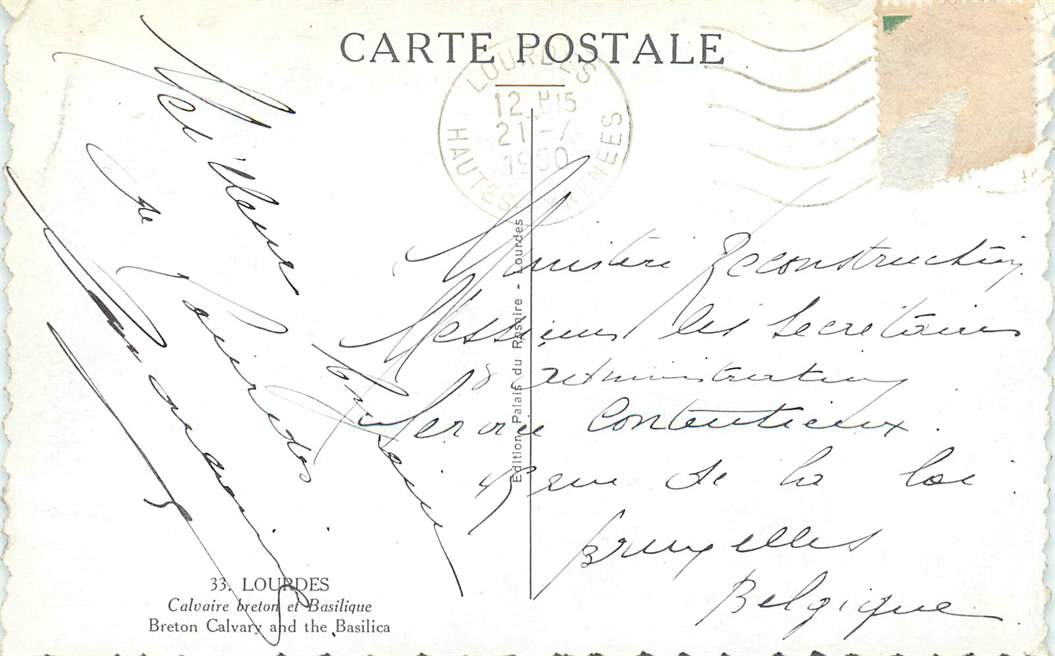 CARTE POSTALE
LOURDES
12 H 15
21 - 7
1950
HAUTES PYRENEES
Meilleurs
de Lourdes
Edition Palais du Rosaire - Lourdes
Ministère Reconstruction
Messieurs les Secrétaires
d'Administration
Service Contentieux.
rue de la loi
Bruxelles
Belgique.
33. LOURDES
Calvaire breton et Basilique
Breton Calvary and the Basilica